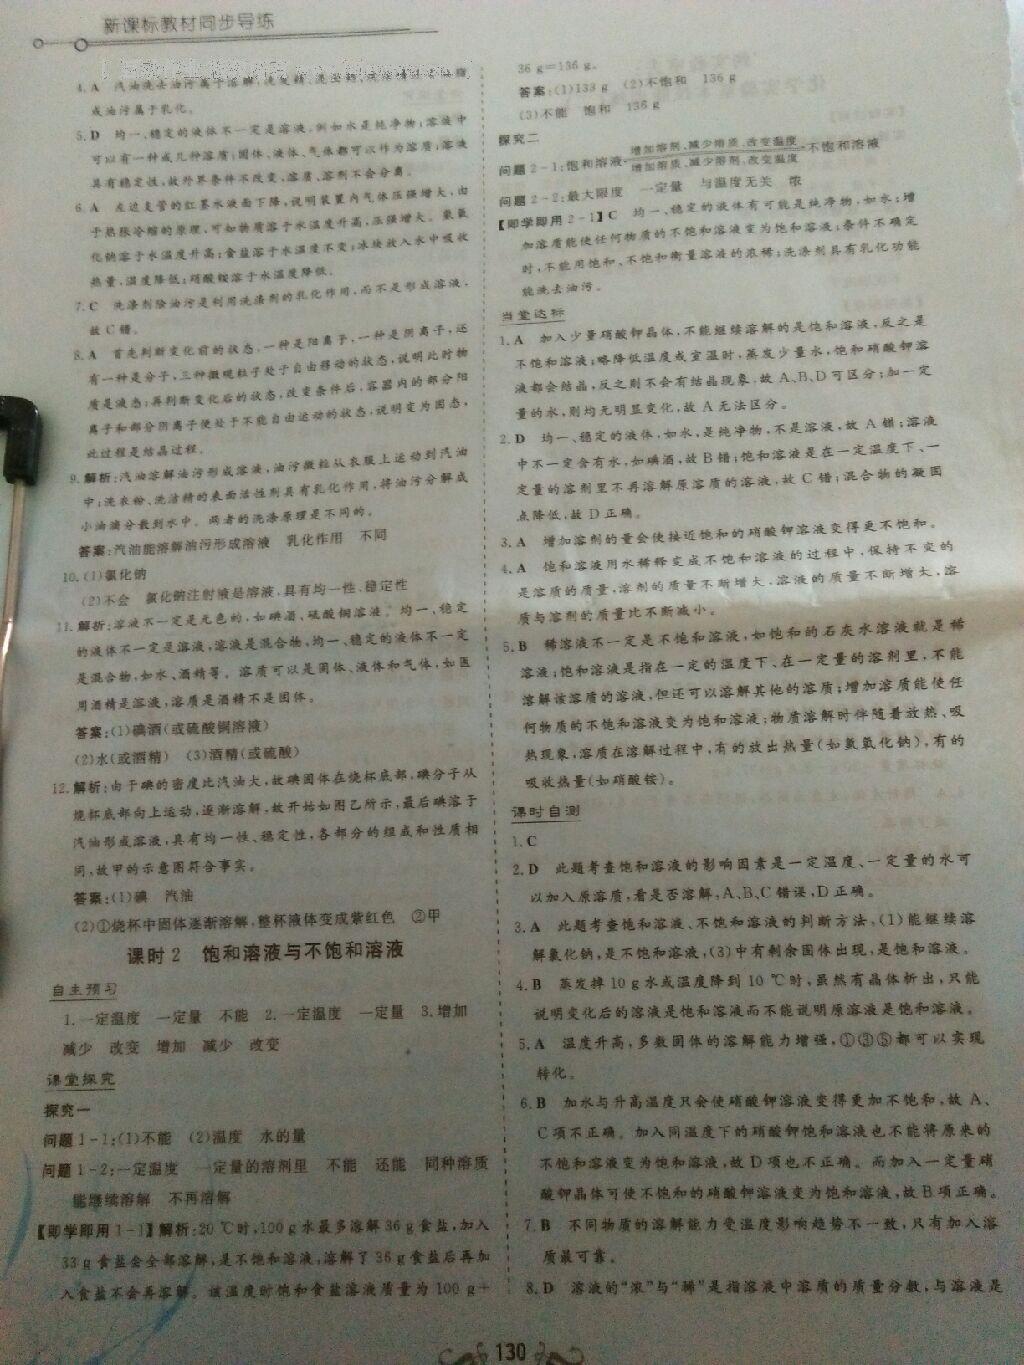 新课标教材同步导练
4. A 汽油洗去油污属于溶解,
或油污属于乳化。
5. D 均一、稳定的液体不一定是溶液,例如水是纯净物;溶液中
可以有一种或几种溶质;固体、液体、气体都可以作为溶质;溶液
具有稳定性,故外界条件不改变,溶质、溶剂不会分离。
6. A 左边支管的红墨水液面下降,说明装置内气体压强增大,由
于热胀冷缩的原理,可知物质溶于水温度升高,压强增大。氢氧
化钠溶于水温度升高;食盐溶于水温度不变;冰块放入水中吸收
热量,温度降低;硝酸铵溶于水温度降低。
7. C 洗涤剂除油污是利用洗涤剂的乳化作用,而不是形成溶液,
故 C 错。
8. A 首先判断变化前的状态,一种是阳离子,一种是阴离子,还
有一种是分子,三种微观粒子处于自由移动的状态,说明此时物
质是液态;再判断变化后的状态,改变条件后,容器内的部分阳
离子和部分阴离子便处于不能自由运动的状态,说明变为固态,
此过程是结晶过程。
9. 解析:汽油溶解油污形成溶液,油污微粒从衣服上运动到汽油
中;洗衣粉、洗洁精的表面活性剂具有乳化作用,将油污分解成
小油滴分散到水中。两者的洗涤原理是不同的。
答案:汽油能溶解油污形成溶液 乳化作用 不同
10. (1)氯化钠
(2)不会 氯化钠注射液是溶液,具有均一性、稳定性
11. 解析:溶液不一定是无色的,如碘酒、硫酸铜溶液。均一、稳定
的液体不一定是溶液,溶液是混合物,均一、稳定的液体不一定
是混合物,如水、酒精等。溶质可以是固体、液体和气体,如医
用酒精是溶液,溶质是酒精不是固体。
答案:(1)碘酒(或硫酸铜溶液)
(2)水(或酒精) (3)酒精(或硫酸)
12. 解析:由于碘的密度比汽油大,故碘固体在烧杯底部,碘分子从
烧杯底部向上运动,逐渐溶解,故开始如图乙所示,最后碘溶于
汽油形成溶液,具有均一性、稳定性,各部分的组成和性质相
同,故甲的示意图符合事实。
答案:(1)碘 汽油
(2)①烧杯中固体逐渐溶解,整杯液体变成紫红色 ②甲
课时2 饱和溶液与不饱和溶液
自主预习
1. 一定温度 一定量 不能 2. 一定温度 一定量 3. 增加
减少 改变 增加 减少 改变
课堂探究
探究一
问题 1-1:(1)不能 (2)温度 水的量
问题 1-2:一定温度 一定量的溶剂里 不能 还能 同种溶质
能继续溶解 不再溶解
【即学即用 1-1】解析:20 ℃时,100 g 水最多溶解 36 g 食盐,加入
33 g 食盐会全部溶解,是不饱和溶液,溶解了 36 g 食盐后再加
入食盐不会再溶解。该温度时饱和食盐溶液质量为 100 g+
36 g=136 g。
答案:(1)133 g (2)不饱和 136 g
(3)不能 饱和 136 g
探究二
问题 2-1:饱和溶液 增加溶剂、减少溶质、改变温度 不饱和溶液
增加溶质、减少溶剂、改变温度
问题 2-2:最大限度 一定量 与温度无关 浓
【即学即用 2-1】C 均一、稳定的液体有可能是纯净物,如水;增
加溶质能使任何物质的不饱和溶液变为饱和溶液;条件不确定
时,不能用饱和、不饱和衡量溶液的浓稀;洗涤剂具有乳化功能
能洗去油污。
当堂达标
1. A 加入少量硝酸钾晶体,不能继续溶解的是饱和溶液,反之是
不饱和溶液;略降低温度或室温时,蒸发少量水,饱和硝酸钾溶
液都会结晶,反之则不会有结晶现象,故 A、B、D 可区分;加一定
量的水,则均无明显变化,故 A 无法区分。
2. D 均一、稳定的液体,如水,是纯净物,不是溶液,故 A 错;溶液
中不一定含有水,如碘酒,故 B 错;饱和溶液是在一定温度下、一
定量的溶剂里不再溶解原溶质的溶液,故 C 错;混合物的凝固
点降低,故 D 正确。
3. A 增加溶剂的量会使接近饱和的硝酸钾溶液变得更不饱和。
4. A 饱和溶液用水稀释变成不饱和溶液的过程中,保持不变的
是溶质的质量,溶剂的质量不断增大,溶液的质量不断增大,溶
质与溶剂的质量比不断减小。
5. B 稀溶液不一定是不饱和溶液,如饱和的石灰水溶液就是稀
溶液;饱和溶液是指在一定的温度下、在一定量的溶剂里,不能
溶解该溶质的溶液,但还可以溶解其他的溶质;增加溶质能使任
何物质的不饱和溶液变为饱和溶液;物质溶解时伴随着放热、吸
热现象,溶质在溶解过程中,有的放出热量(如氢氧化钠),有的
吸收热量(如硝酸铵)。
课时自测
1. C
2. D 此题考查饱和溶液的影响因素是一定温度、一定量的水可
以加入原溶质,看是否溶解,A、B、C 错误,D 正确。
3. A 此题考查饱和溶液、不饱和溶液的判断方法,(1)能继续溶
解氯化钠,是不饱和溶液,(3)中有剩余固体出现,是饱和溶液。
4. B 蒸发掉 10 g 水或温度降到 10 ℃时,虽然有晶体析出,只能
说明变化后的溶液是饱和溶液而不能说明原溶液是饱和溶液。
5. A 温度升高,多数固体的溶解能力增强,①③⑤都可以实现
转化。
6. B 加水与升高温度只会使硝酸钾溶液变得更加不饱和,故 A、
C 项不正确。加入同温度下的硝酸钾饱和溶液也不能将原来的
不饱和溶液变为饱和溶液,故 D 项也不正确。而加入一定量硝
酸钾晶体可使不饱和的硝酸钾溶液变为饱和溶液,故 B 项正确。
7. B 不同物质的溶解能力受温度影响趋势不一致,只有加入溶
质最可靠。
8. D 溶液的“浓”与“稀”是指溶液中溶质的质量分数,与溶液是
130